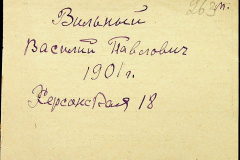 263п.
Вильный
Василий Павлович
1901г.
Херсонская 18